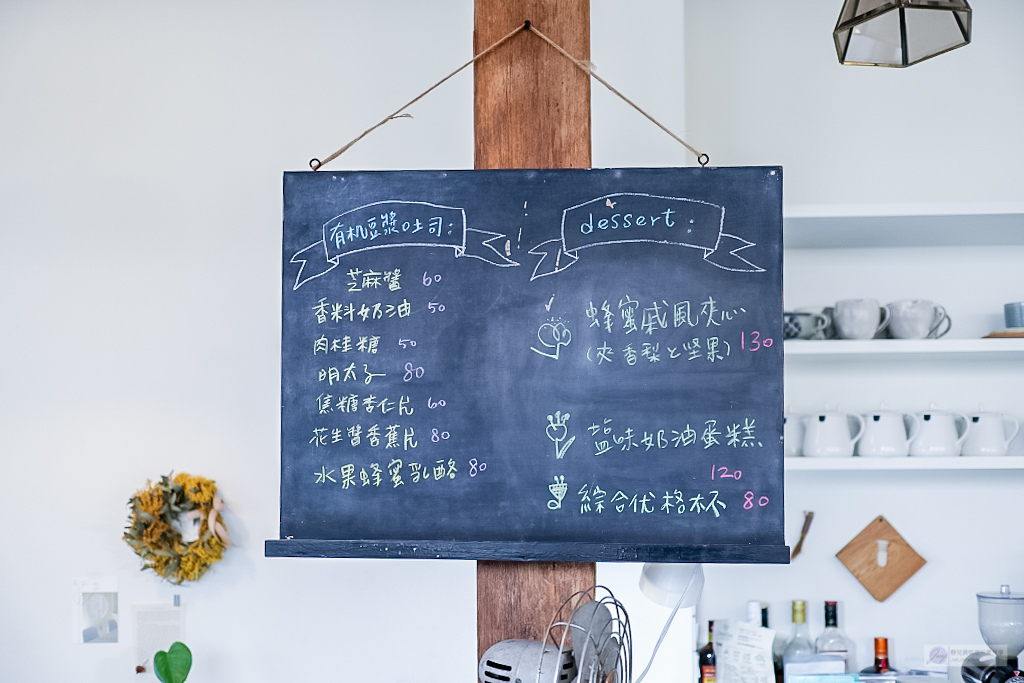 有机豆漿吐司：
芝麻醬 60
香料奶油 50
肉桂糖 50
明太子 80
焦糖杏仁片 60
花生醬香蕉片 80
水果蜂蜜乳酪 80
dessert：
蜂蜜戚風夾心
(夾香梨と堅果) 130
塩味奶油蛋糕
120
綜合优格杯 80